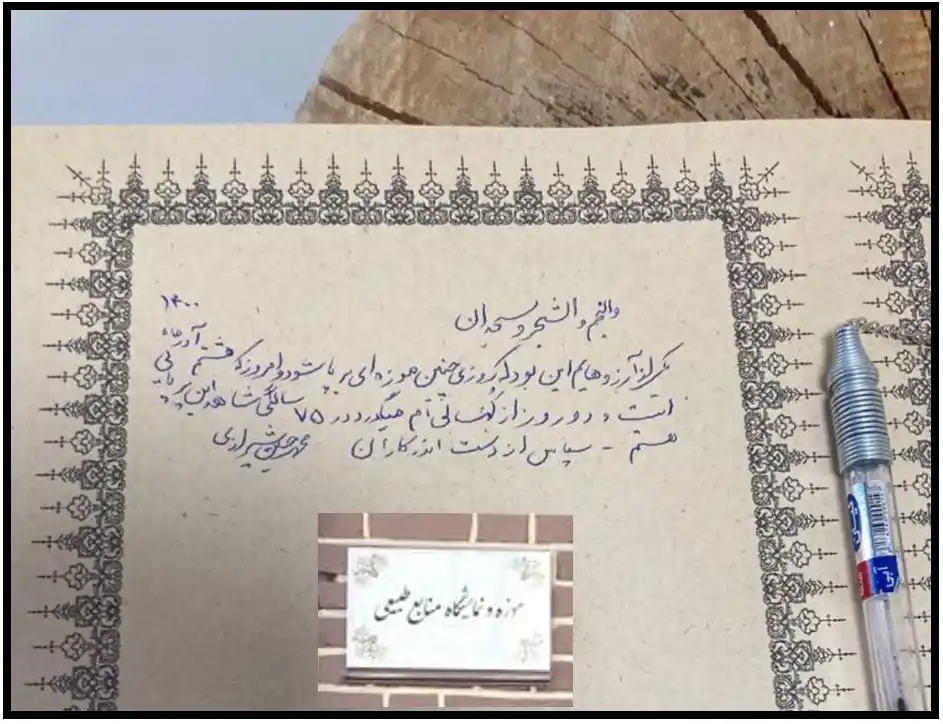 والنجم و الشجر و یسجدان
۱۴۰۰
یکی از آرزوهایم این بود که روزی چنین موزه ای بر پا شود و امروز که هشتم آذرماه
است و دو روز از کهنسالی ام میگذرد در ۷۵ سالگی شاهد این بر پایی
هستم - سپاس از دست اندر کاران
شیرازی
موزه و نمایشگاه منابع طبیعی
آبی